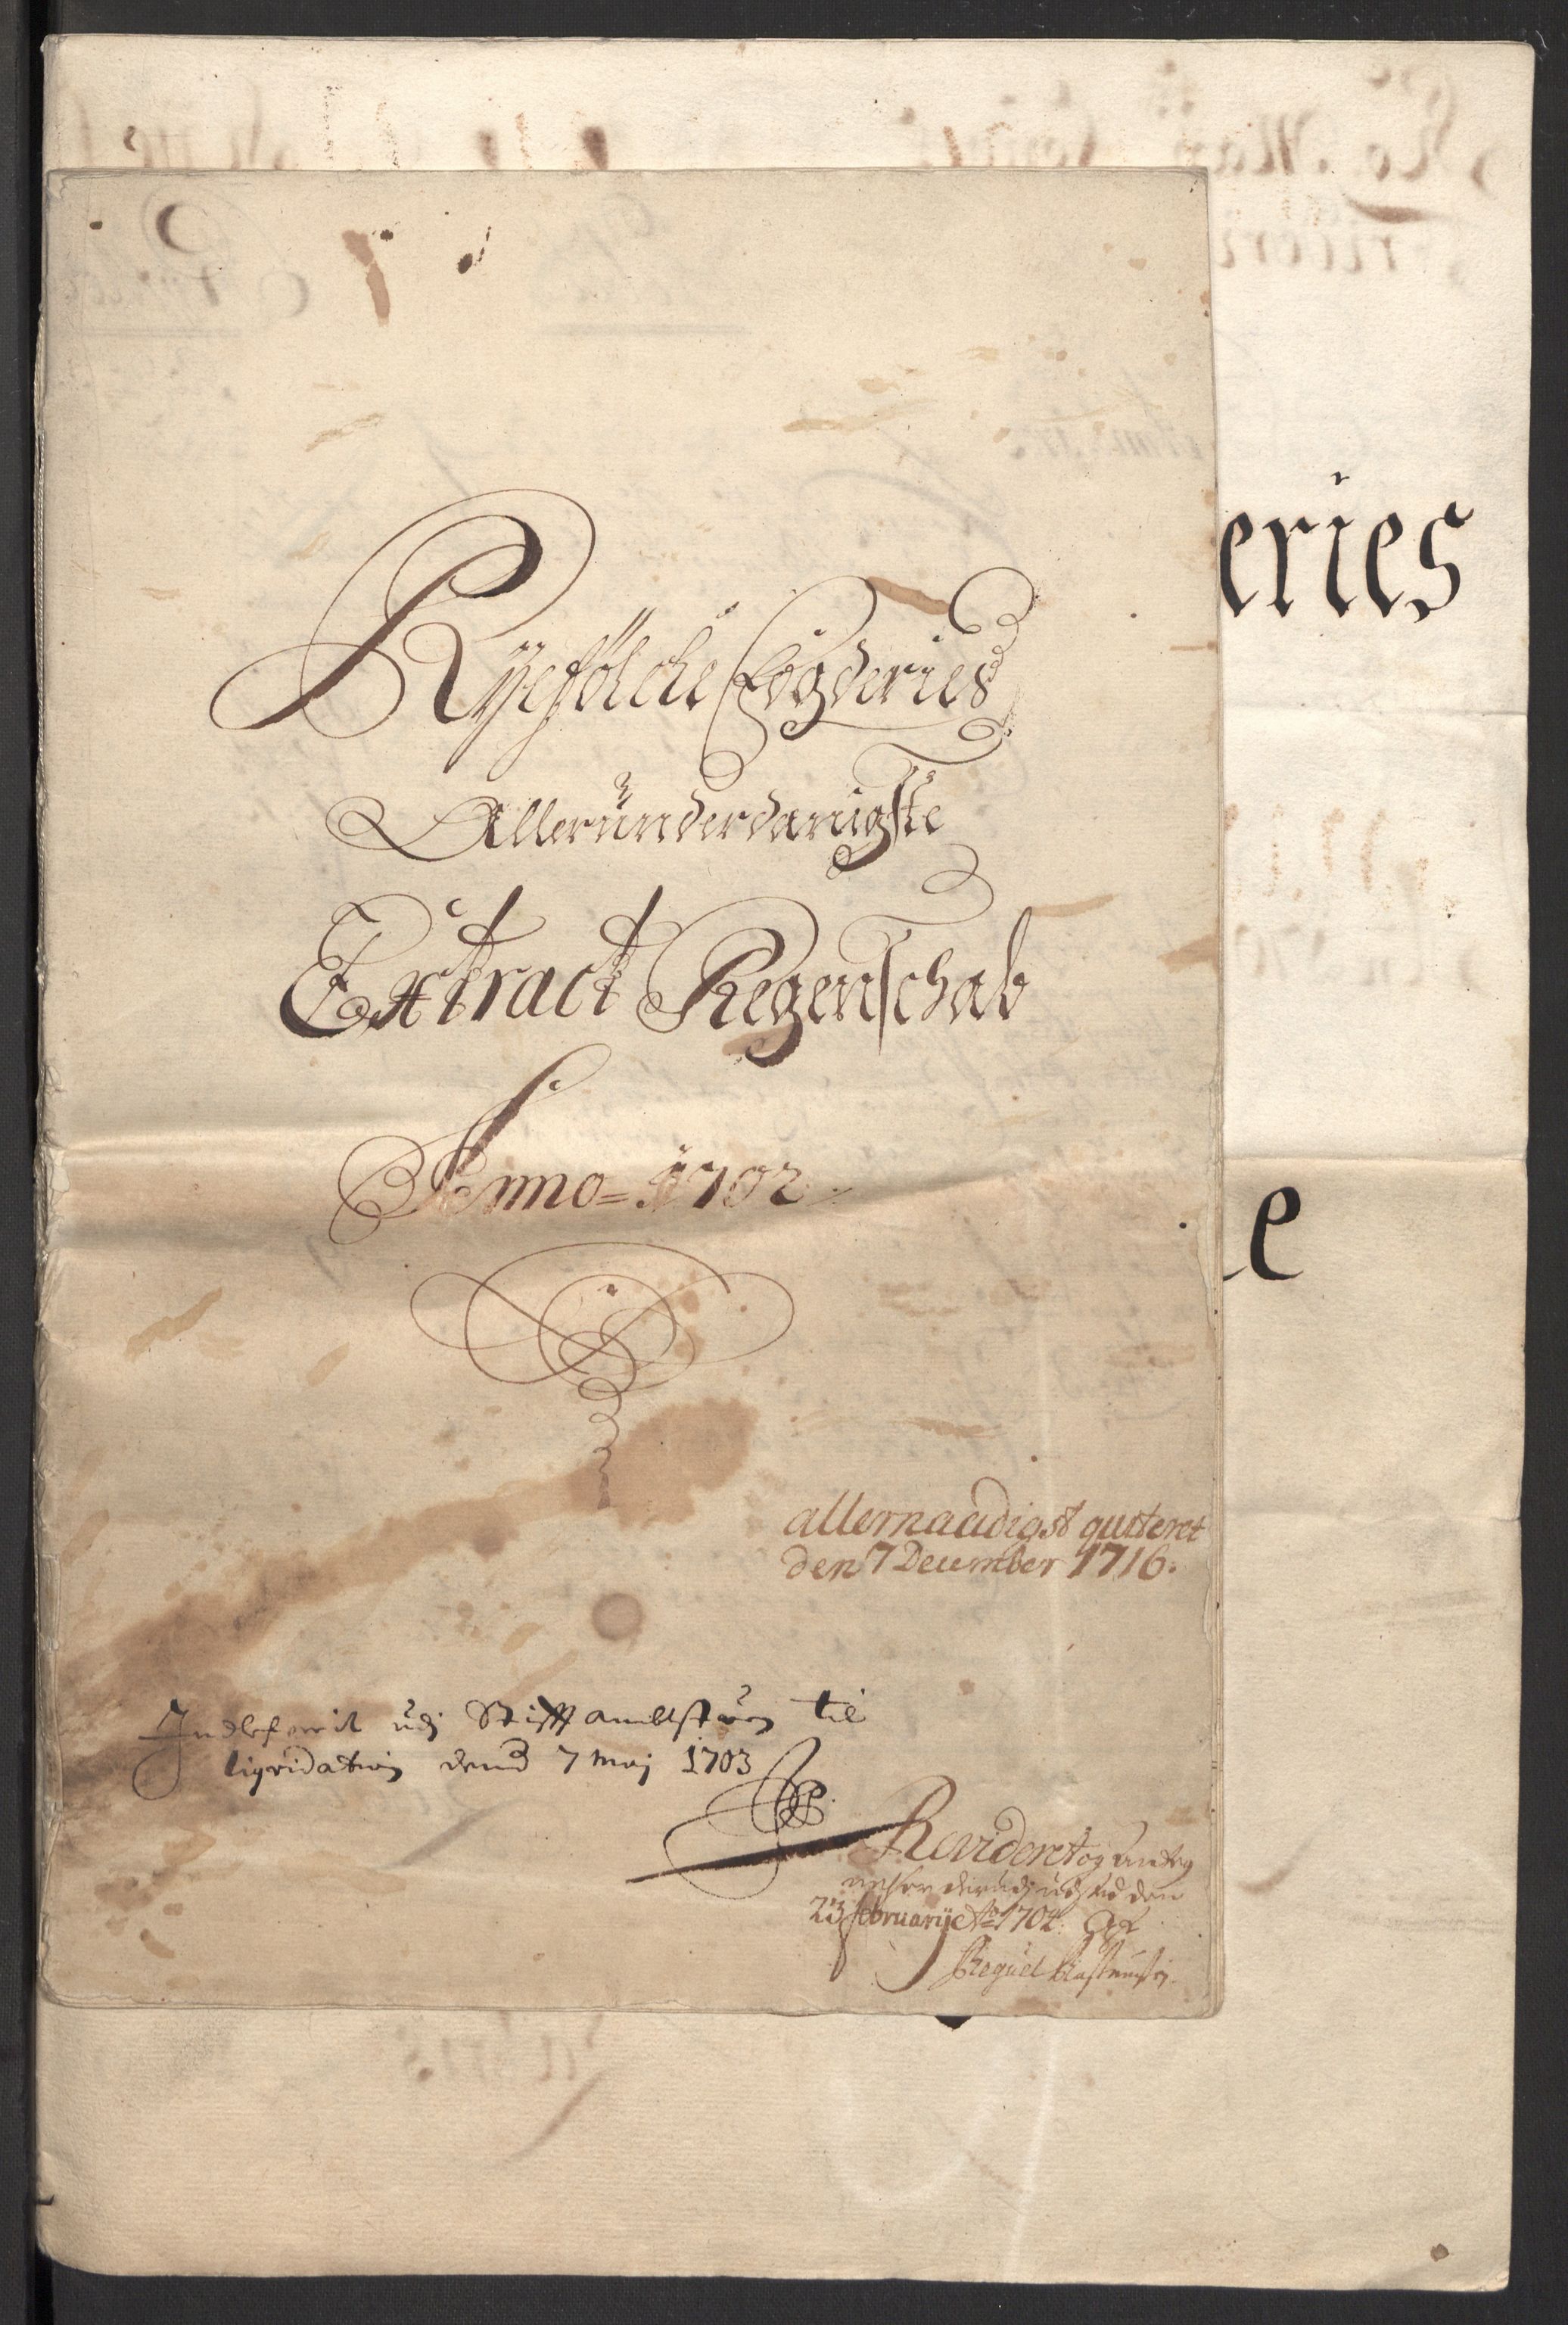 Ryefölche Fogderies
Allerunderdanigste
Extract Regenschab
Anno = 1702
allernaadigst quiteret
den 7 December 1716.
Indlefverit udj Stifft ambtstuen til
liqvidation dend 7 Maj 1703
Revideret og
derudj den
23 februarij Ao 1704.
eries
e